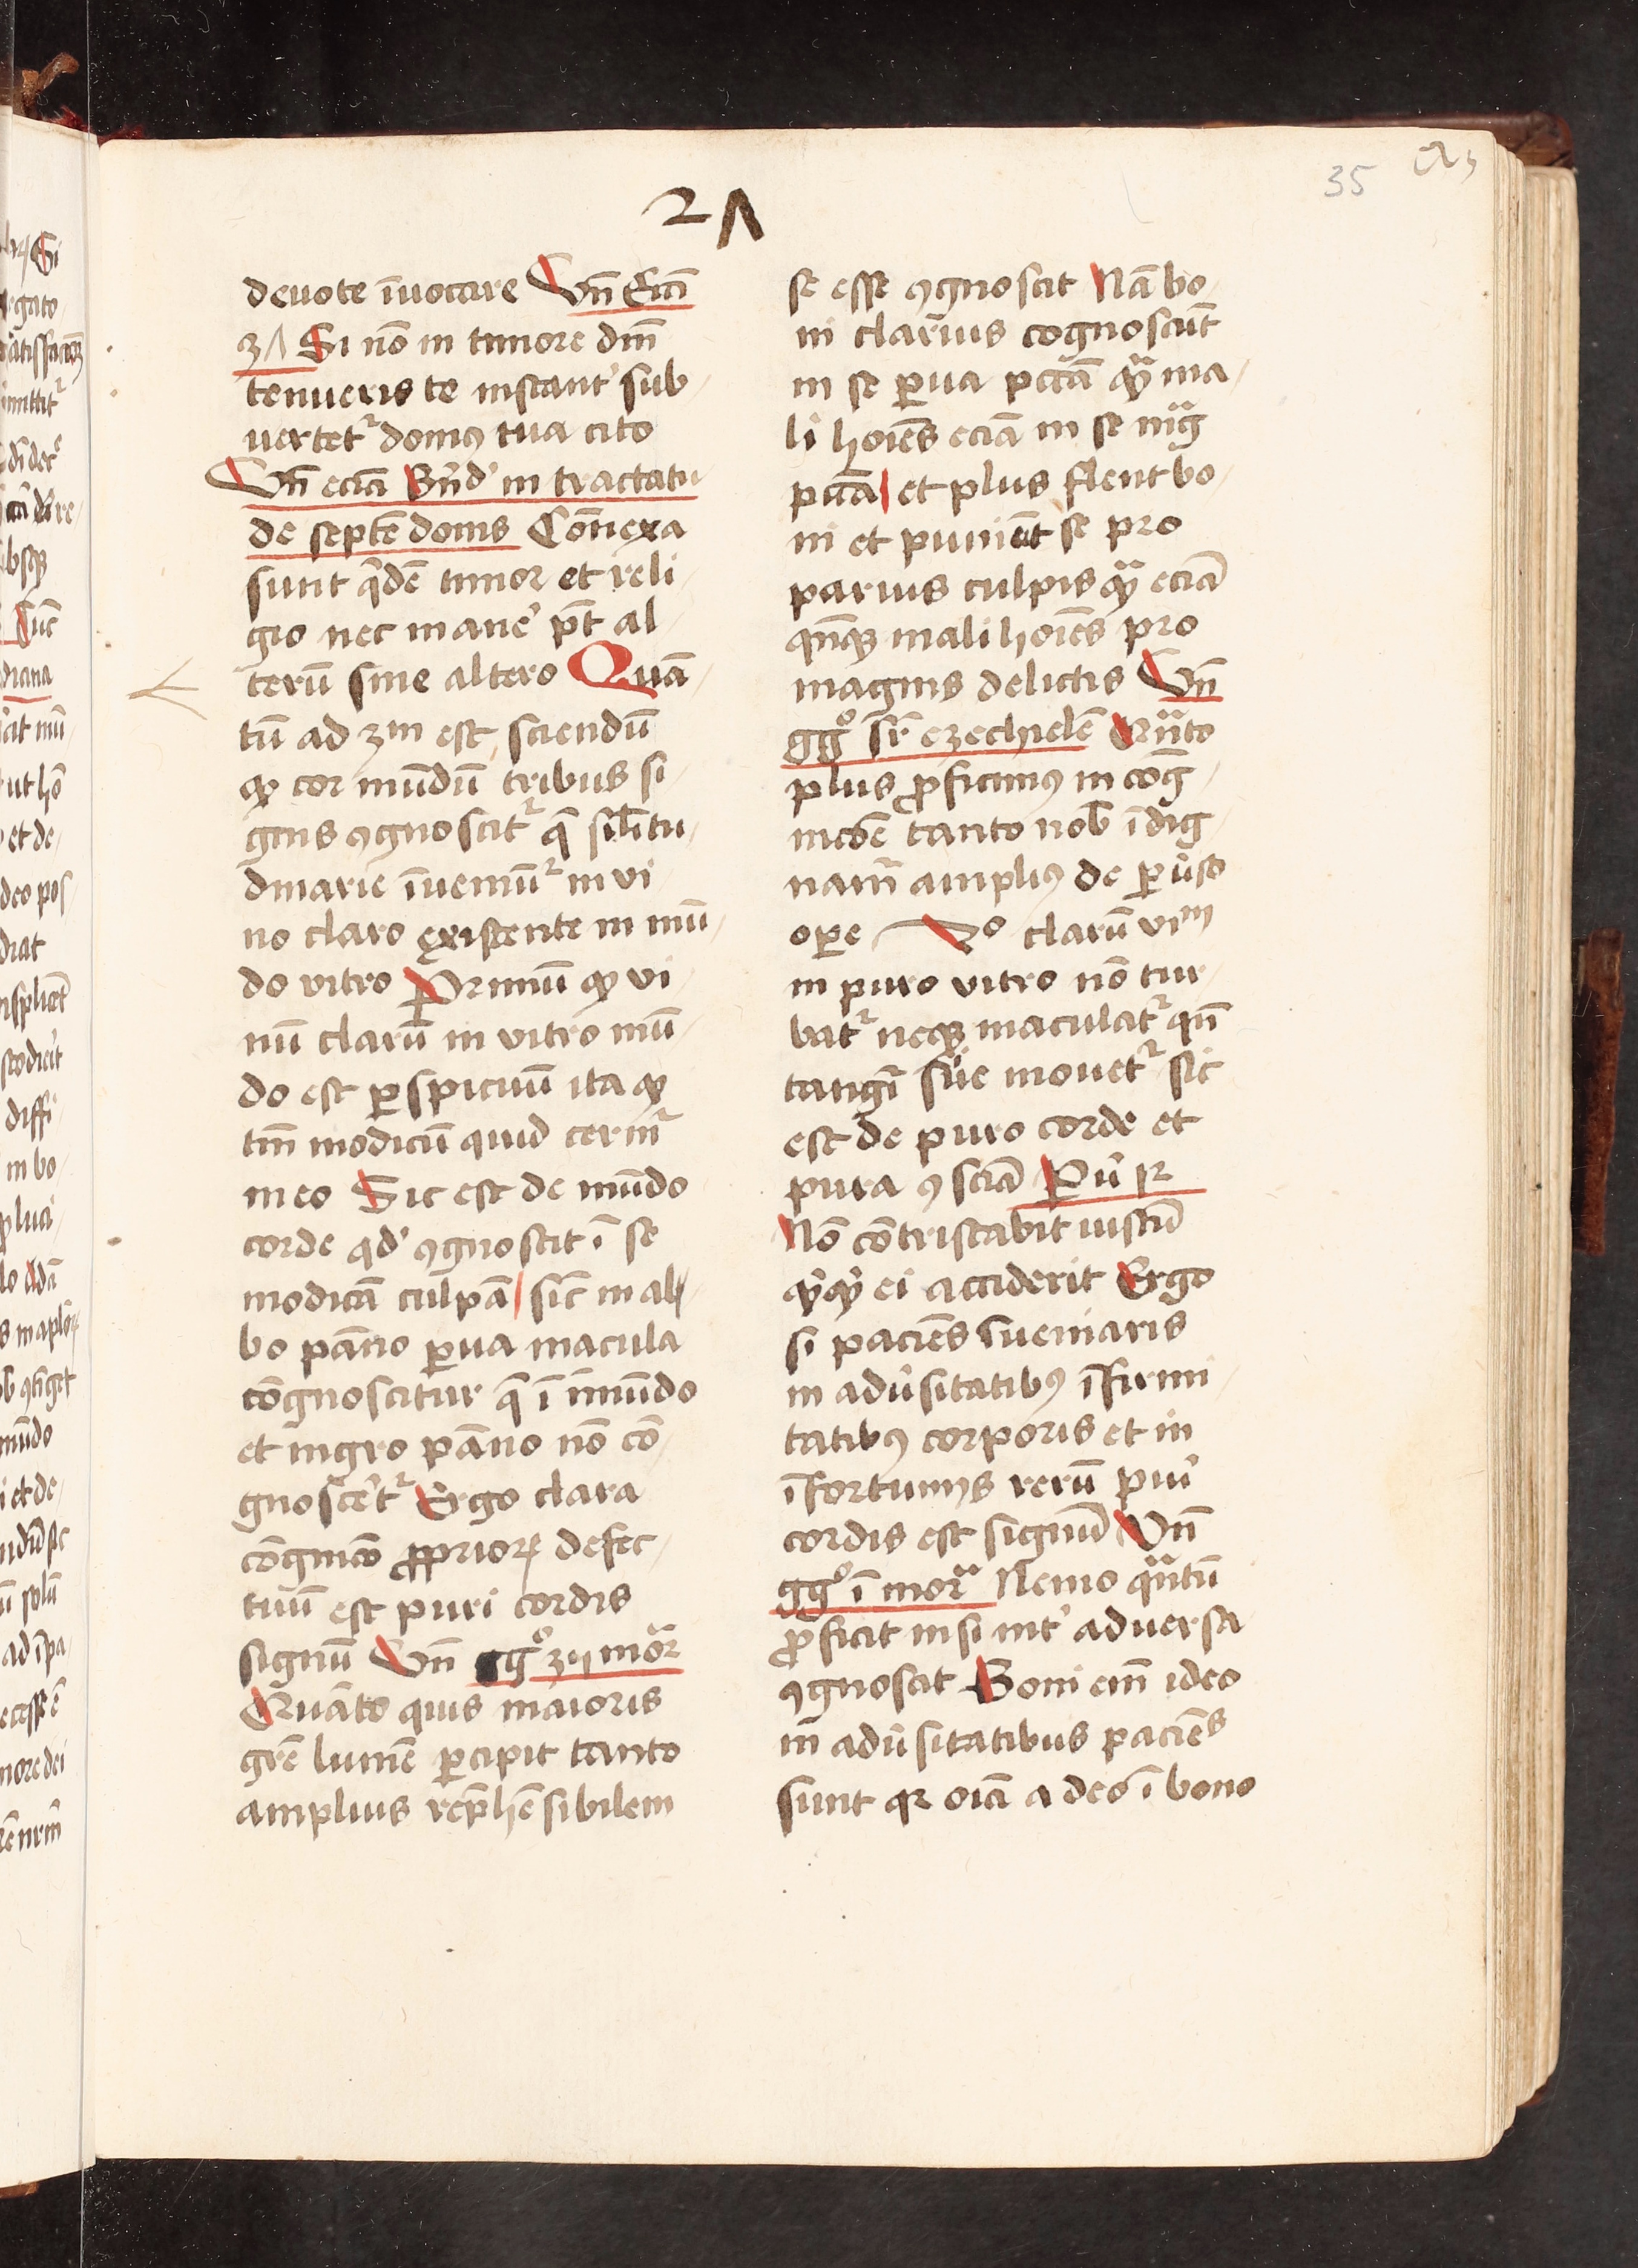 35
27
deuote īuocare Vn̄ Ecci
37 Si nō in timore dn̄i
tenueris te instant᾽ sub
uertet᷑ domꝯ tua cito
Vn̄ eciā Bn̄d᾽ in tractatu
de septē donis Cōnexa
sunt q̄dē timor et reli
gio nec mane᾽ pt̄ al
terū sine altero Quā
tū ad 3m est sciendū
ꝙ cor mūdū tribus si
gnis ꝯgnoscit᷑ q̄ sil̄itu
dinarie īuemiū᷑ in vi
no claro existente in mū
do vitro Primū ꝙ vi
nū clarū in vitro mū
do est ꝑspicuū ita ꝙ
tm̄ modicū quid cernit᷑
in eo Sic est de mūdo
corde qd᾽ ꝯgnoscit ī se
modicā culpā sic̄ in al
bo pāno ꝑua macula
cōgnoscitur q̄ ī īmūdo
et nigro pāno nō co
gnosce᾽t᷑ Ergo clara
cōgnicō ꝓprioꝝ defec
tuū est puri cordis
signū Vn̄ ggͦ 3ij mor̄
Quāto quis maioris
gr̄e lumē ꝑcipit tanto
amplius rep̄hēsibilem
se esse ꝯgnoscit Nā bo
ni clarius cognoscūt
in se ꝑua pcc̄ā qᷓ ma
li hoīes eciā in se mᷓg
pcc̄ā et plus flent bo
ni et puniūt se pro
paruis culpis qᷓ eciā
qn̄qꝫ mali hoīes pro
magnis delictis Vn̄
ggͦ sr̄ ezechielē Qᷓnto
plus ꝓficimꝯ in cog
nicōe tanto nob̄ īdig
nam᷑ amplius de ꝑuso
oꝑe 2o clarū vim
in puro vitro nō tur
bat᷑ neqꝫ maculat᷑ qn̄
tangi᷑ siue mouet᷑ sic
est de puro corde et
pura ꝯsciā Pu᾽ 12
Nō cōtristabit iustū
qͥqͥ ei acciderit Ergo
si paciēs īueniaris
in adu᾽sitatibꝯ īfirmi
tatibꝯ corporis et in
īfortunijs rerū puri
cordis est signū Vn̄
ggͦ ī morᷓ Nemo qᷓntū
ꝓficit nisi int᾽ aduersa
ꝯgnoscit Boni em̄ ideo
in adu᾽sitatibus paciēs
sunt qꝛ oīa a deo ī bono